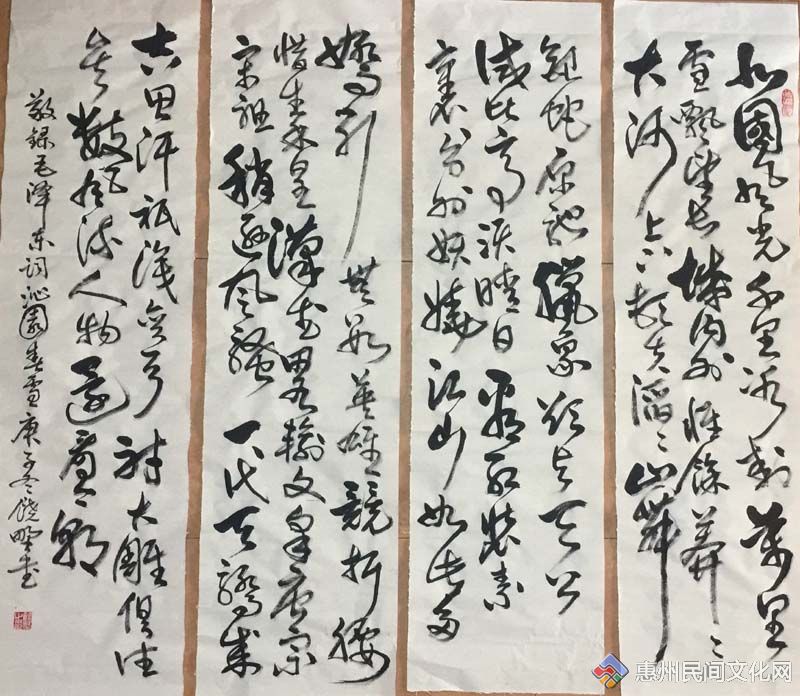 北國風光千里冰封萬里
雪飄望長城內外惟餘莽〻
大河上下頓失滔〻山舞
銀蛇原馳臘象欲與天公
試比高須晴日看紅裝素
裹分外妖嬈江山如此多
嬌引無數英雄競折腰
惜秦皇漢武略輸文采唐宗
宋祖稍遜風騷一代天驕成
吉思汗衹識彎弓射大雕俱往
矣數風流人物還看今朝
敬録毛泽东词沁園春雪庚子冬饶书
惠州民间文化网